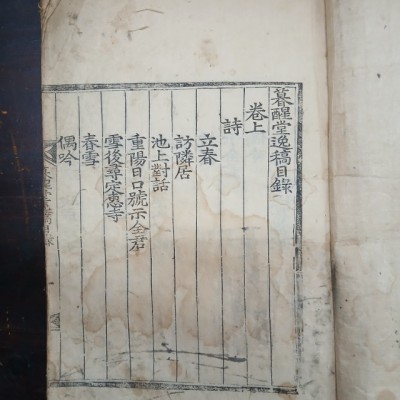 慕醒堂逸稿目錄
卷上
詩
立春
訪隣居
池上對話
重陽日口號示金君
雪後尋定慧寺
春雪
偶吟